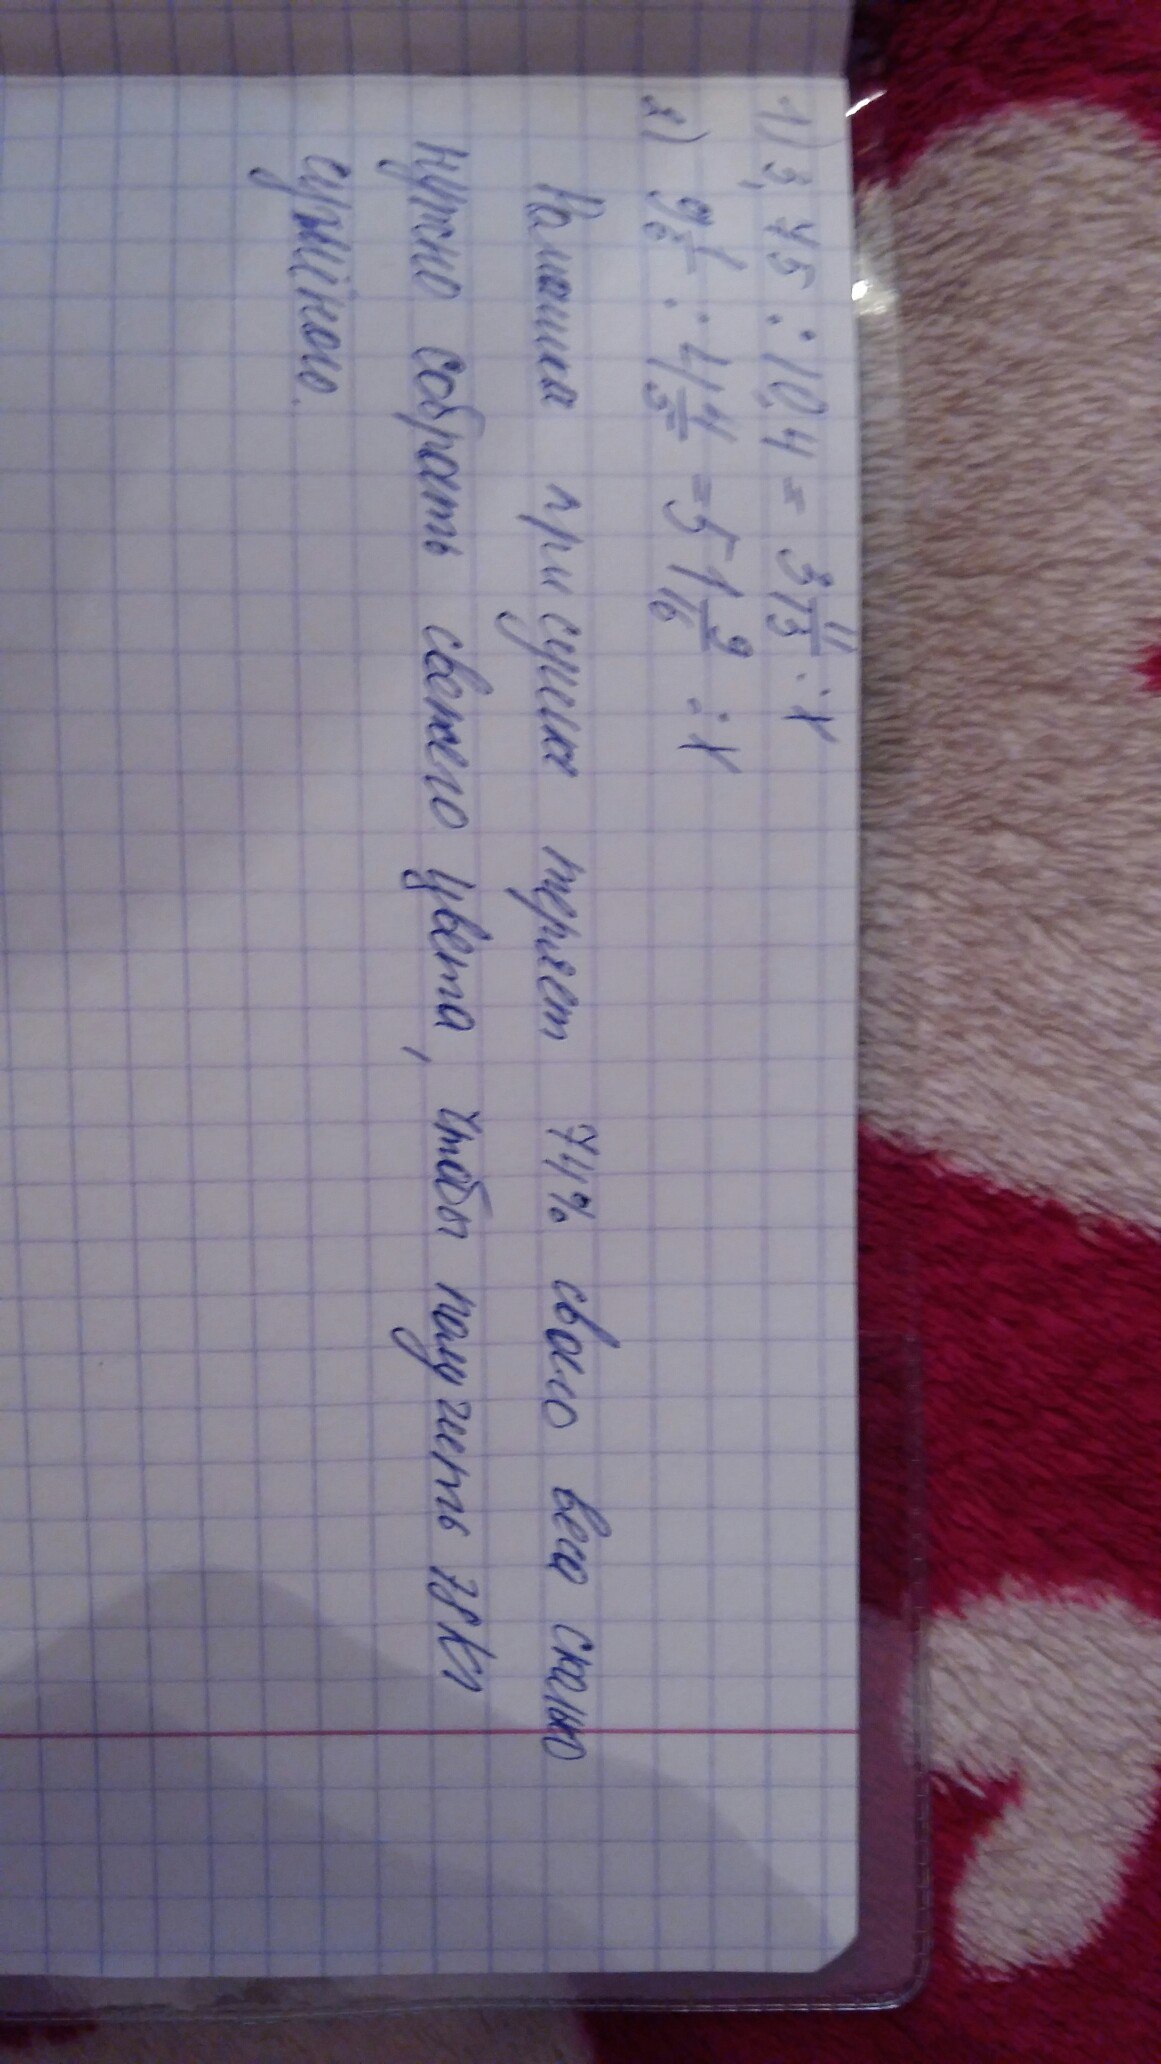 1) 3,45 : 10,4 = 3 11/13 : x
2) 9 1/6 : 4 4/5 = 51 9/16 : x
Ромашка при сушке теряет 74% своего веса сколько
нужно собрать свежего цвета, чтобы получить 78 кг
сушёного.